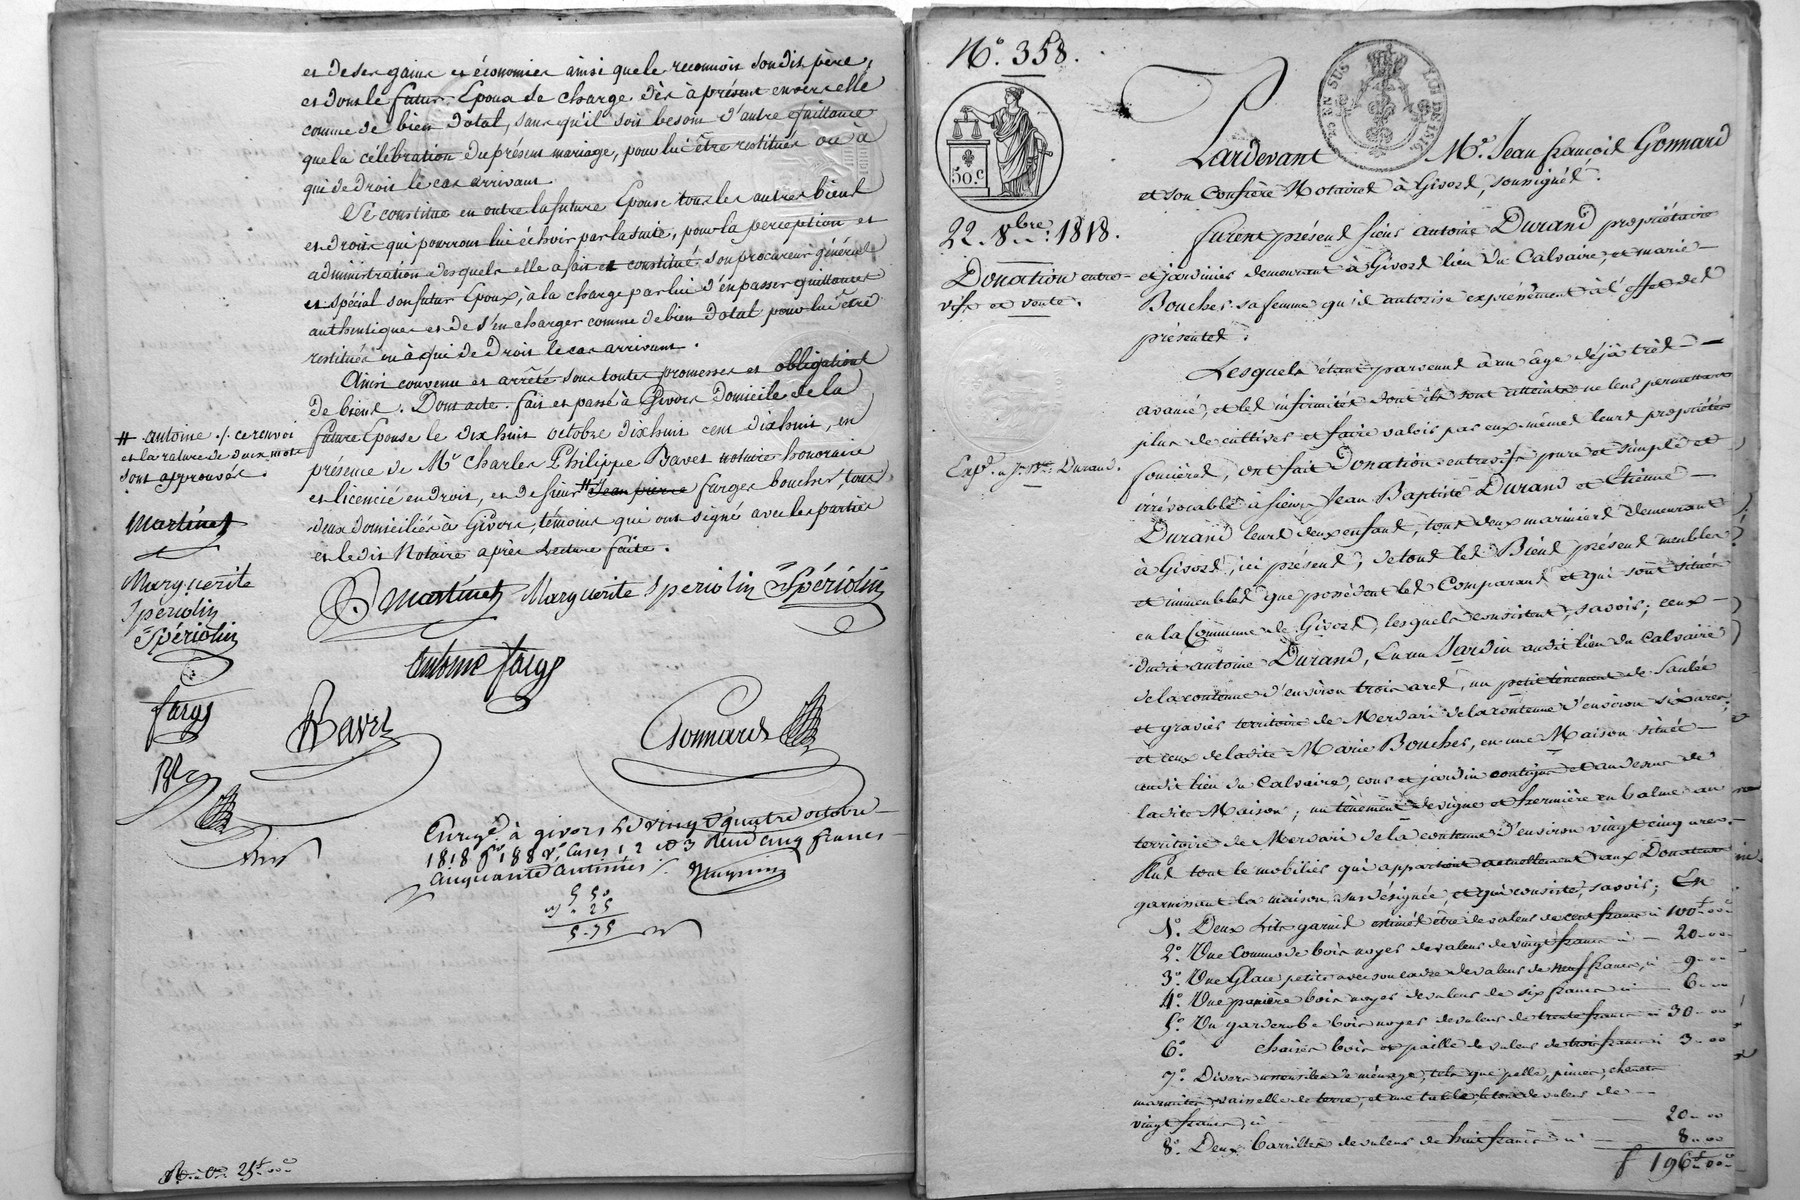 et de ses gains et économies ainsi que le reconnoit sondit père,
et dont le futur Epoux se charge dès à présent envers elle
comme de bien dotal, sans qu'il soit besoin d'autre quittance
que la célébration du présent mariage, pour lui être restitués ou à
qui de droit le cas arrivant.
Se constitue en outre la future Epouse tous les autres biens
et droits qui pourront lui échoir par la suite, pour la perception et
administration desquels elle a fait et constitué son procureur général
et spécial son futur Epoux, à la charge par lui d'en passer quittances
authentiques et de s'en charger comme de bien dotal pour lui être
restitués ou à qui de Droit le cas arrivant.
Ainsi convenu et arrêté sous toutes promesses et obligations
de biens. Dont acte. fait et passé à Givors Domicile de la
future Epouse le dix huit octobre dix huit cent dix huit, en
présence de Mr Charles Philippe Bavet notaire honoraire
et licencié en droit, et de sieur # Jean pierre Farges boucher, tous
deux domiciliés à Givors, témoins qui ont signé avec les parties
et ledit Notaire après Lecture faite.
# antoine ./. ce renvoi
et la rature de deux mots
sont approuvés.
Martinet
Marguerite
Spériolin
Spériolin
farges
Martinet Marguerite Speriolin Spériolin
antoine farges
Bavet
Gonnard
Enregé. à givors Le vingt quatre octobre
1818 fo 188 vo. Cases 1 2 et 3 Reçu cinq francs
cinquante centimes
5 50
25
5-75
25f 00c
No. 358.
50.c
22. 8bre. 1818.
Donation entre-
vifs et vente.
Expé. à J. Bte. Durand.
Pardevant Me. Jean François Gonnard
et son Confrère Notaires à Givors, soussignés.
furent présens sieur antoine Durand propriétaire
et jardinier demeurant à Givors lieu du Calvaire, et marie
Boucher sa femme qu'il autorise expressément à l'effet des
présentes.
Lesquels étant parvenus à un âge déjà très
avancé, et les infirmités dont ils sont atteints ne leur permettant
plus de cultiver et faire valoir par eux-mêmes leurs propriétés
foncières, ont fait Donation entrevifs pure et simple et
irrévocable à sieurs Jean Baptiste Durand et Etienne
Durand leurs deux enfans, tous deux mariniers demeurant
à Givors, ici présens, de tous les Biens présens meubles
et immeubles que possèdent les Comparans et qui sont situés
en la Commune de Givors, lesquels consistent, savoir; ceux
dudit antoine Durand, En un Jardin audit lieu du Calvaire
de la contenue d'environ trois ares, un petit tènement de saulée
et gravier territoire de Mervari de la contenue d'environ six ares;
et ceux de ladite Marie Boucher, en une Maison située
audit lieu du Calvaire, cour et jardin contigus et au dessus de
ladite Maison; un tènement de vigne et hermière en balme au
territoire de Mervari de la contenue d'environ vingt cinq ares.
Plus tout le mobilier qui appartient actuellement aux Donateurs
garnissant la maison sus-désignée, et qui consiste, savoir; En
1o. Deux Lits garnis estimés être de valeur de cent francs ci 100f 00c
2o. Une Commode bois noyer de valeur de vingt francs ci 20 00
3o. Une Glace petite avec son cadre de valeur de neuf francs, ci 9 00
4o. Une panière bois noyer de valeur de six francs ci 6 00
5o. Un garderobe bois noyer de valeur de trente francs ci 30 00
6o. chaises bois et paille de valeur de trois francs ci 3 00
7o. Divers ustensiles de ménage, tels que pelle, pinces, chenets
marmites, vaisselle de terre, et une table, le tout de valeur de
vingt francs, ci 20 00
8o. Deux barrilles de valeur de huit francs ci 8 00
f 196f 00c